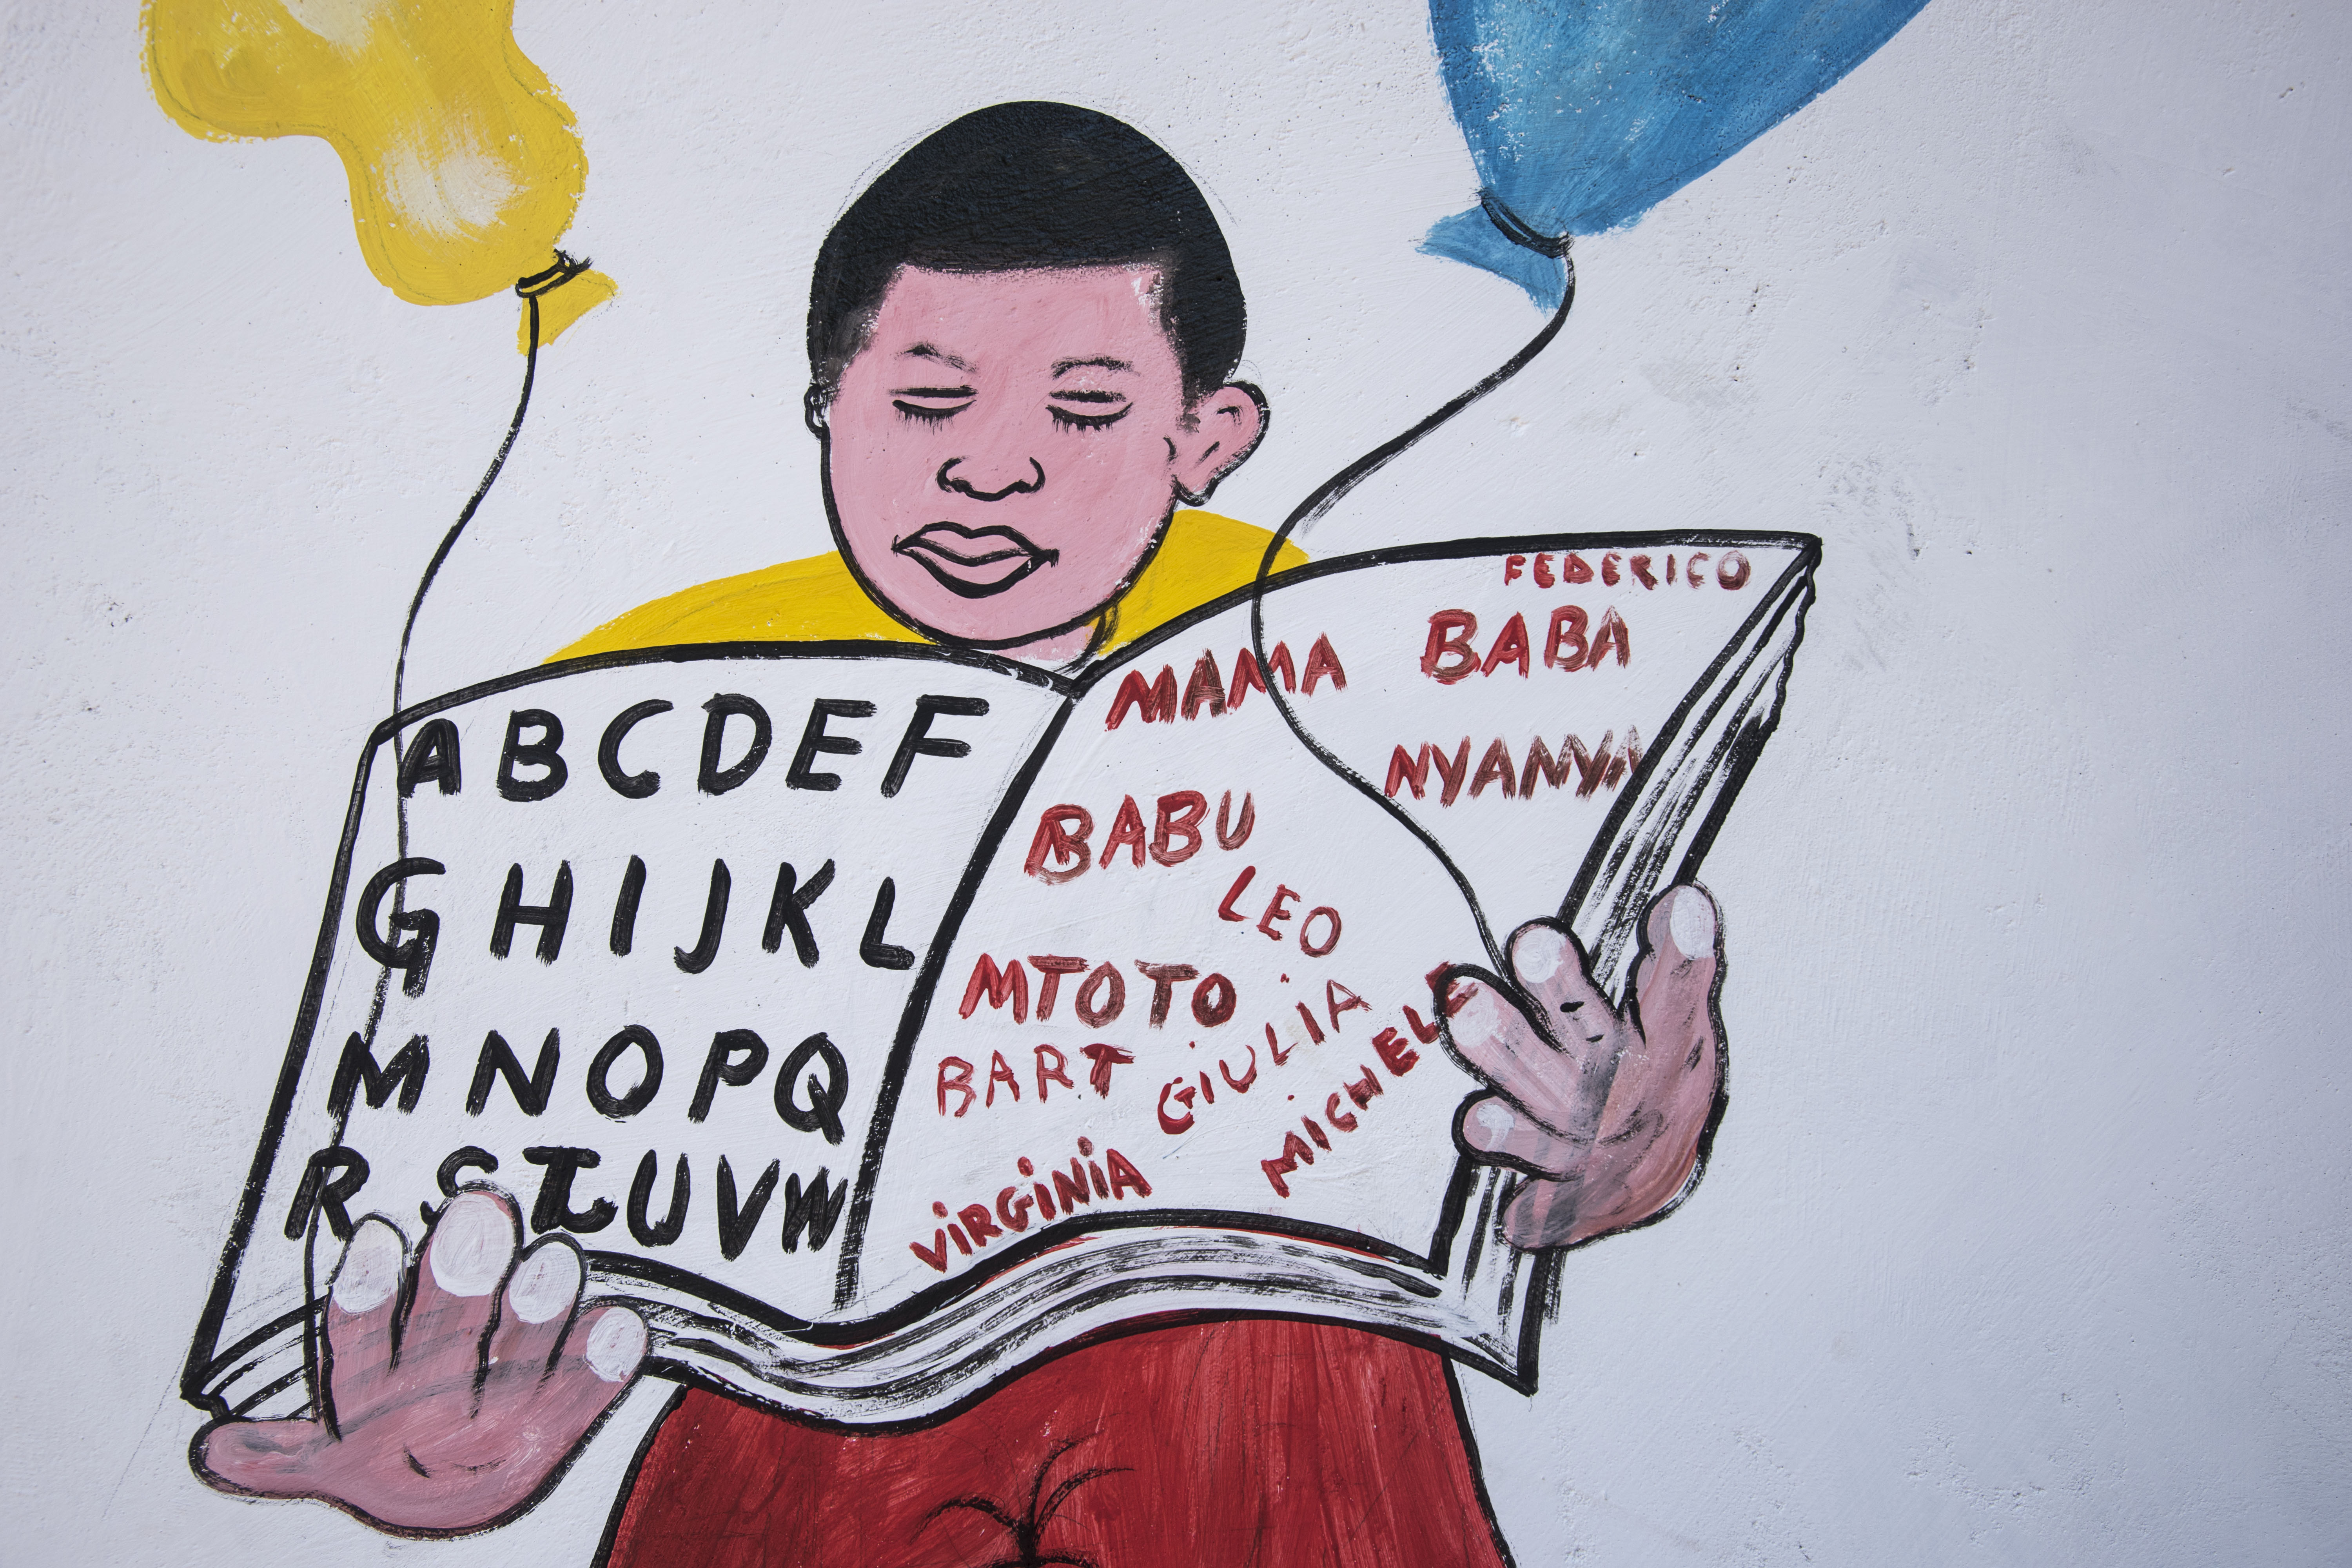 ABCDEF
GHIJKL
MNOPQ
RSTUVW
FEDERICO
MAMA BABA
NYANYA
BABU
LEO
MTOTO
BART GIULIA
MICHELE
VIRGINIA